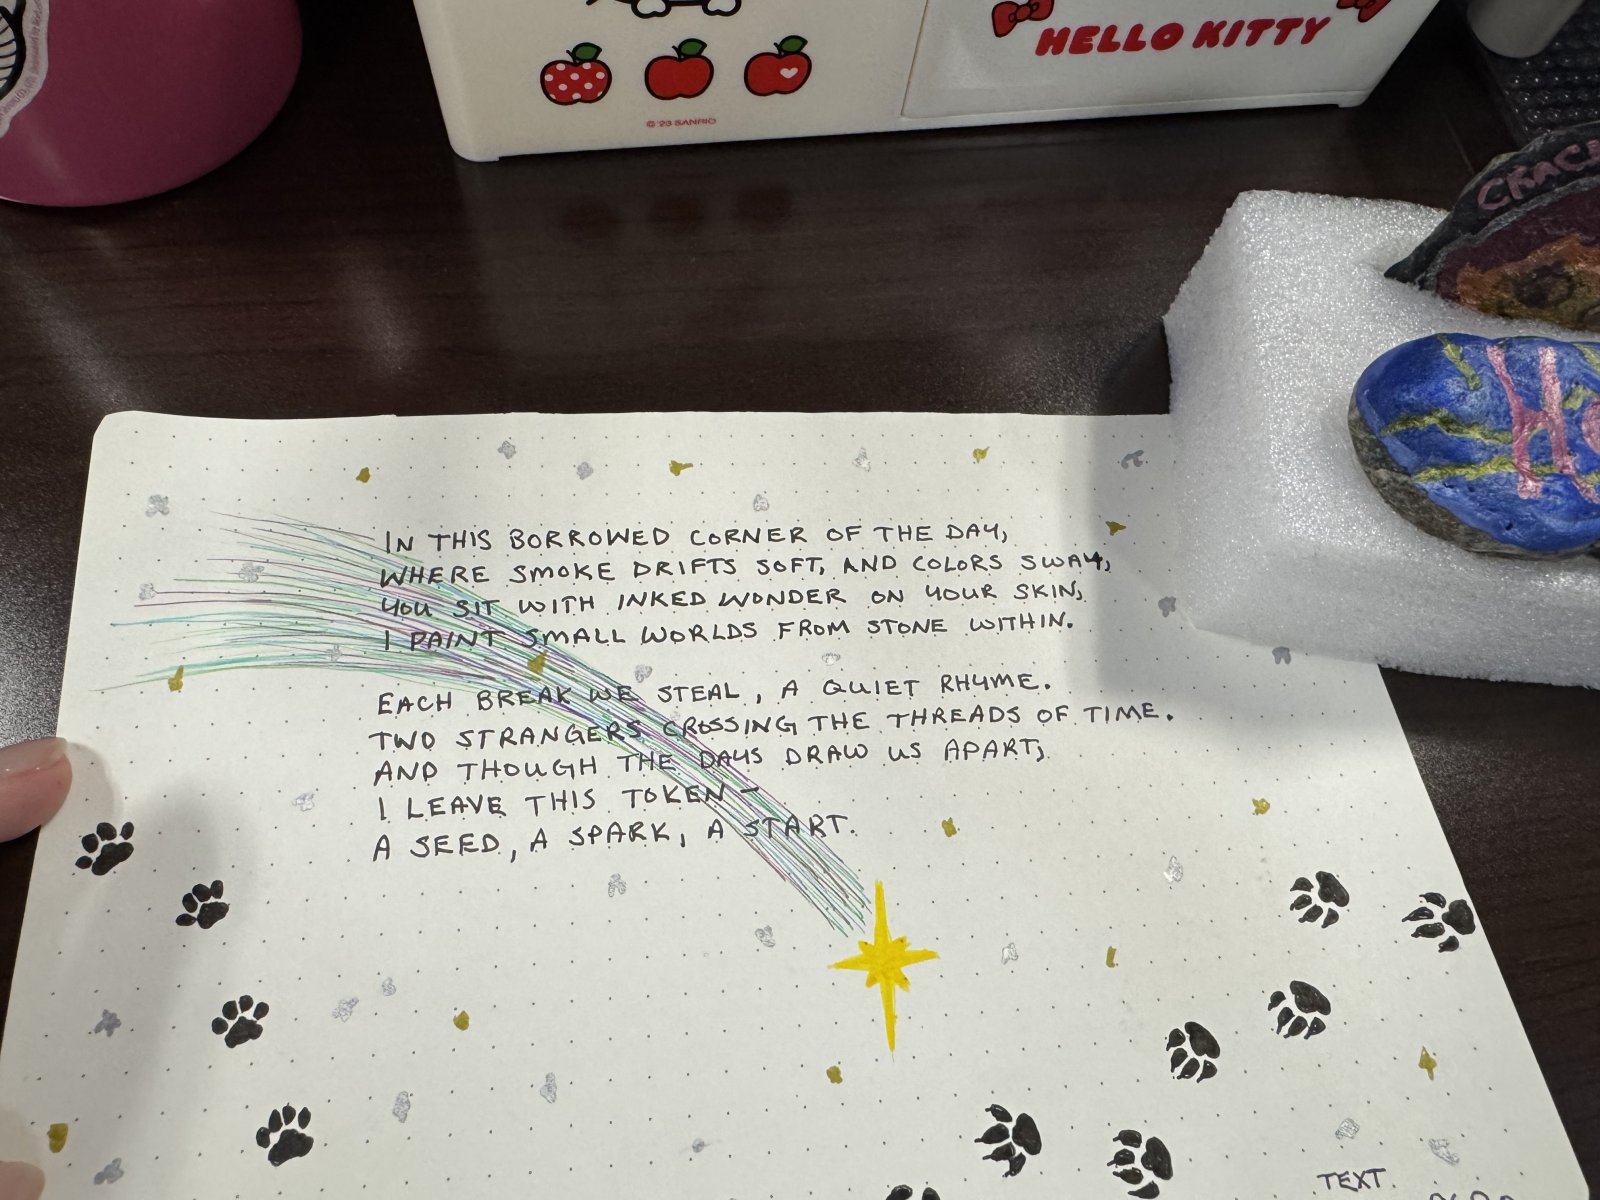 HELLO KITTY
© '23 SANRIO
CRAC
H
IN THIS BORROWED CORNER OF THE DAY,
WHERE SMOKE DRIFTS SOFT, AND COLORS SWAY,
YOU SIT WITH INKED WONDER ON YOUR SKIN,
I PAINT SMALL WORLDS FROM STONE WITHIN.
EACH BREAK WE STEAL, A QUIET RHYME.
TWO STRANGERS CROSSING THE THREADS OF TIME.
AND THOUGH THE DAYS DRAW US APART,
I LEAVE THIS TOKEN –
A SEED, A SPARK, A START.
TEXT